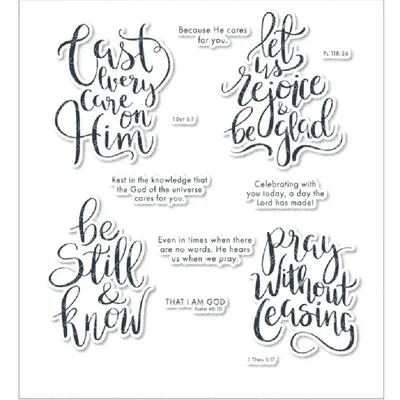 Cast
every
care on
Him
Because He cares
for you.
let
us
rejoice
&
be glad
Ps 118:24
1 Pet 5:7
Rest in the knowledge that
the God of the universe
cares for you.
Celebrating with
you today, a day the
Lord has made!
be
Still
&
know
Even in times when there
are no words, He hears
us when we pray.
THAT I AM GOD
Psalm 46:10
pray
Without
Ceasing
1 Thes 5:17